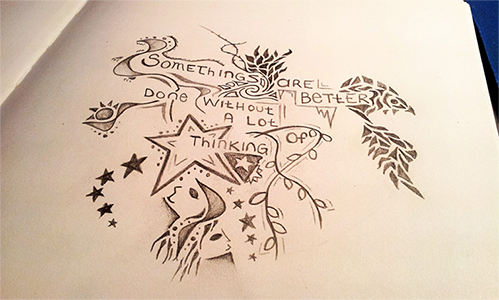 Somethings are Better
Done Without
A Lot Of
Thinking